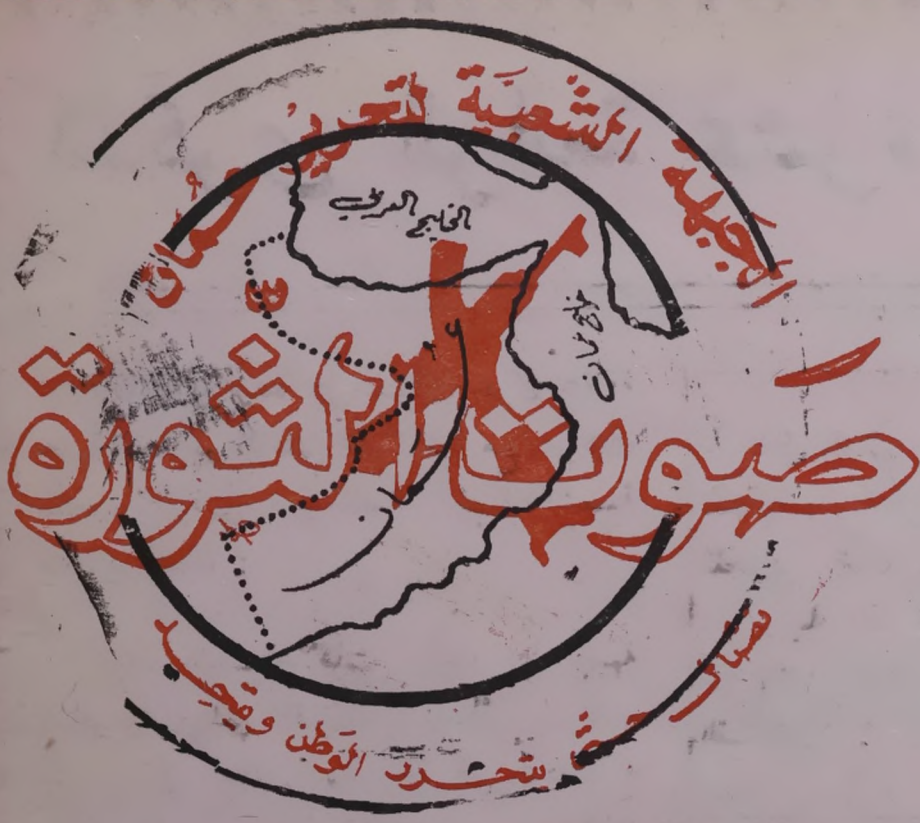 الجَبهَة الشَعبيَة لتحرير عُمان
الخليج العربي
خليج عمان
صَوت الثورة
نضال حتىٰ يتحرر الوَطن